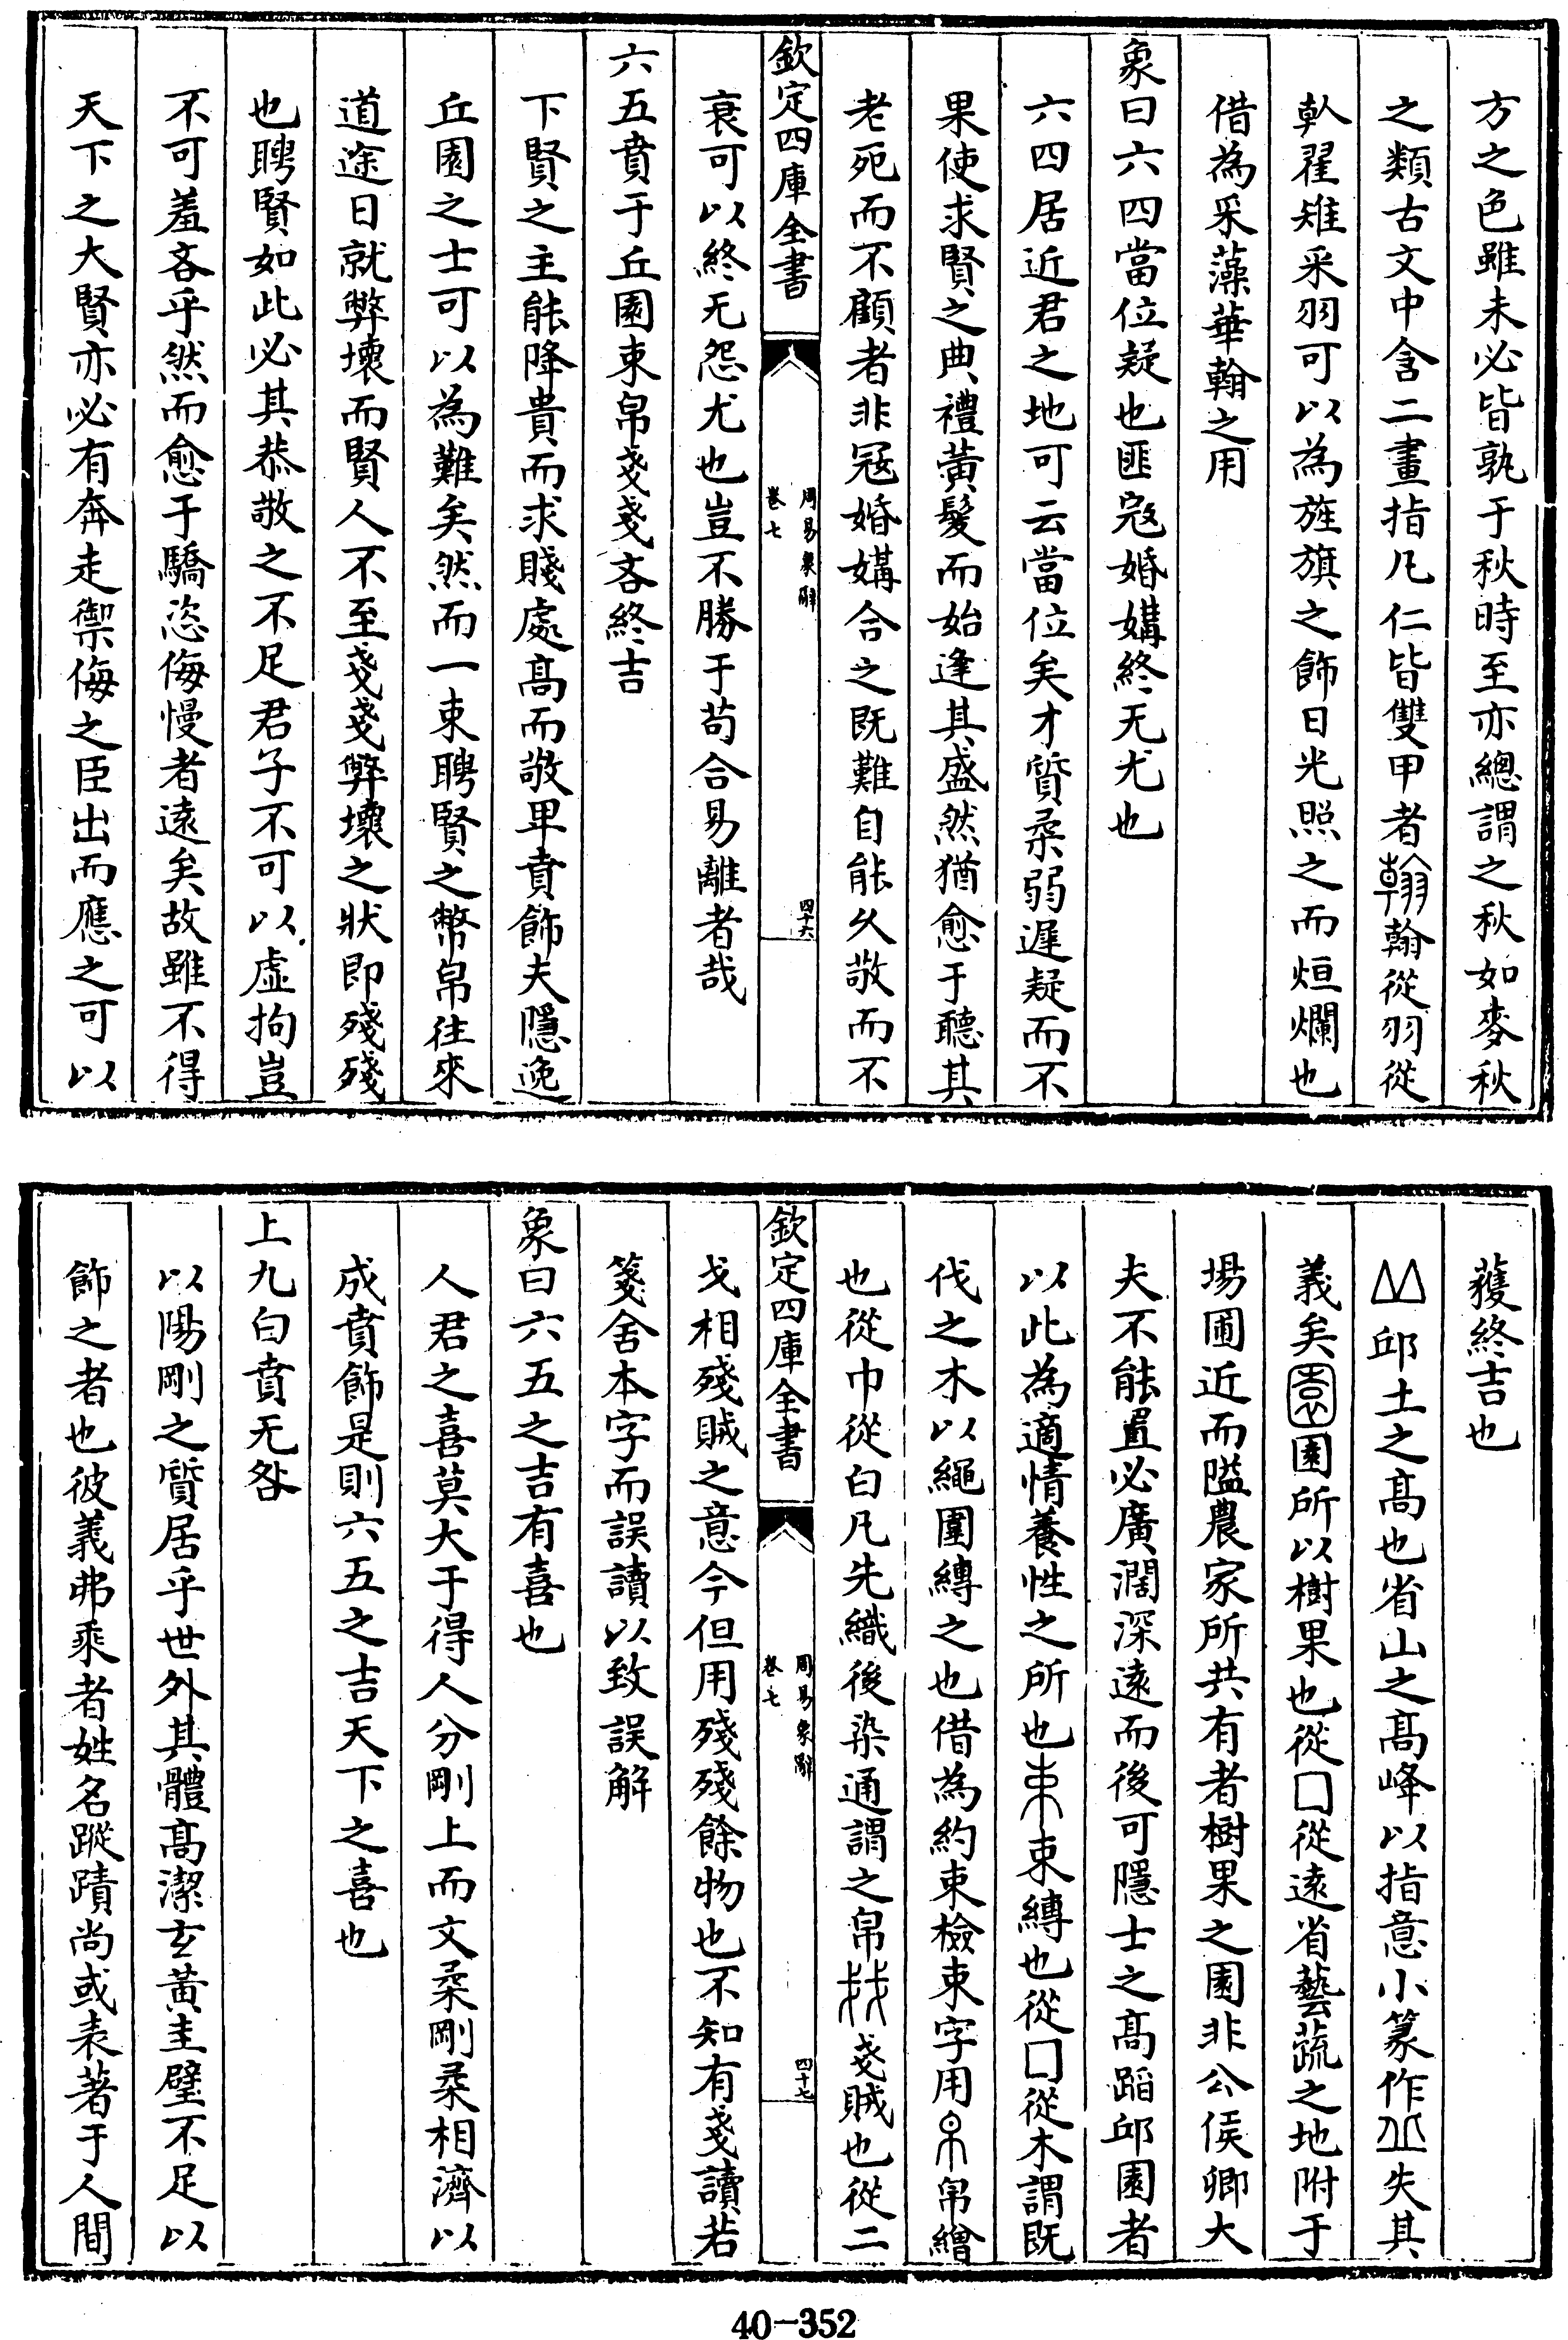 方之色雖未必皆孰于秋時至亦總謂之秋如麥秋
之類古文中含二畫指凡仁皆雙甲者翰從羽從
倝翟雉采羽可以為旌旗之飾日光照之而烜爛也
借為采藻華翰之用
象曰六四當位疑也匪寇婚媾終无尤也
六四居近君之地可云當位矣才質柔弱遲疑而不
果使求賢之典禮黃髮而始逢其盛然猶愈于聽其
老死而不顧者非寇婚媾合之既難自能久敬而不
欽定四庫全書
周易象辭
卷七
四十六
衰可以終无怨尤也豈不勝于苟合易離者哉
六五賁于丘園束帛戔戔吝終吉
下賢之主能降貴而求賤處高而敬卑賁飾夫隱逸
丘園之士可以為難矣然而一束聘賢之幣帛往來
道途日就弊壞而賢人不至戔戔弊壞之狀即殘殘
也聘賢如此必其恭敬之不足君子不可以虛拘豈
不可羞吝乎然而愈于驕恣侮慢者遠矣故雖不得
天下之大賢亦必有奔走禦侮之臣出而應之可以
獲終吉也
邱土之高也省山之高峰以指意小篆作失其
義矣園所以樹果也從囗從遠省藝蔬之地附于
場圃近而隘農家所共有者樹果之園非公侯卿大
夫不能置必廣濶深遠而後可隱士之高蹈邱園者
以此為適情養性之所也束縛也從囗從木謂既
伐之木以繩圍縛之也借為約束檢束字用帛繒
也從巾從白凡先織後染通謂之帛戔賊也從二
欽定四庫全書
周易象辭
卷七
四十七
戈相殘賊之意今但用殘殘餘物也不知有戔讀若
箋舍本字而誤讀以致誤解
象曰六五之吉有喜也
人君之喜莫大于得人分剛上而文柔剛柔相濟以
成賁飾是則六五之吉天下之喜也
上九白賁无咎
以陽剛之質居乎世外其體高潔玄黃圭璧不足以
飾之者也彼義弗乘者姓名蹤蹟尚或表著于人間
40-352